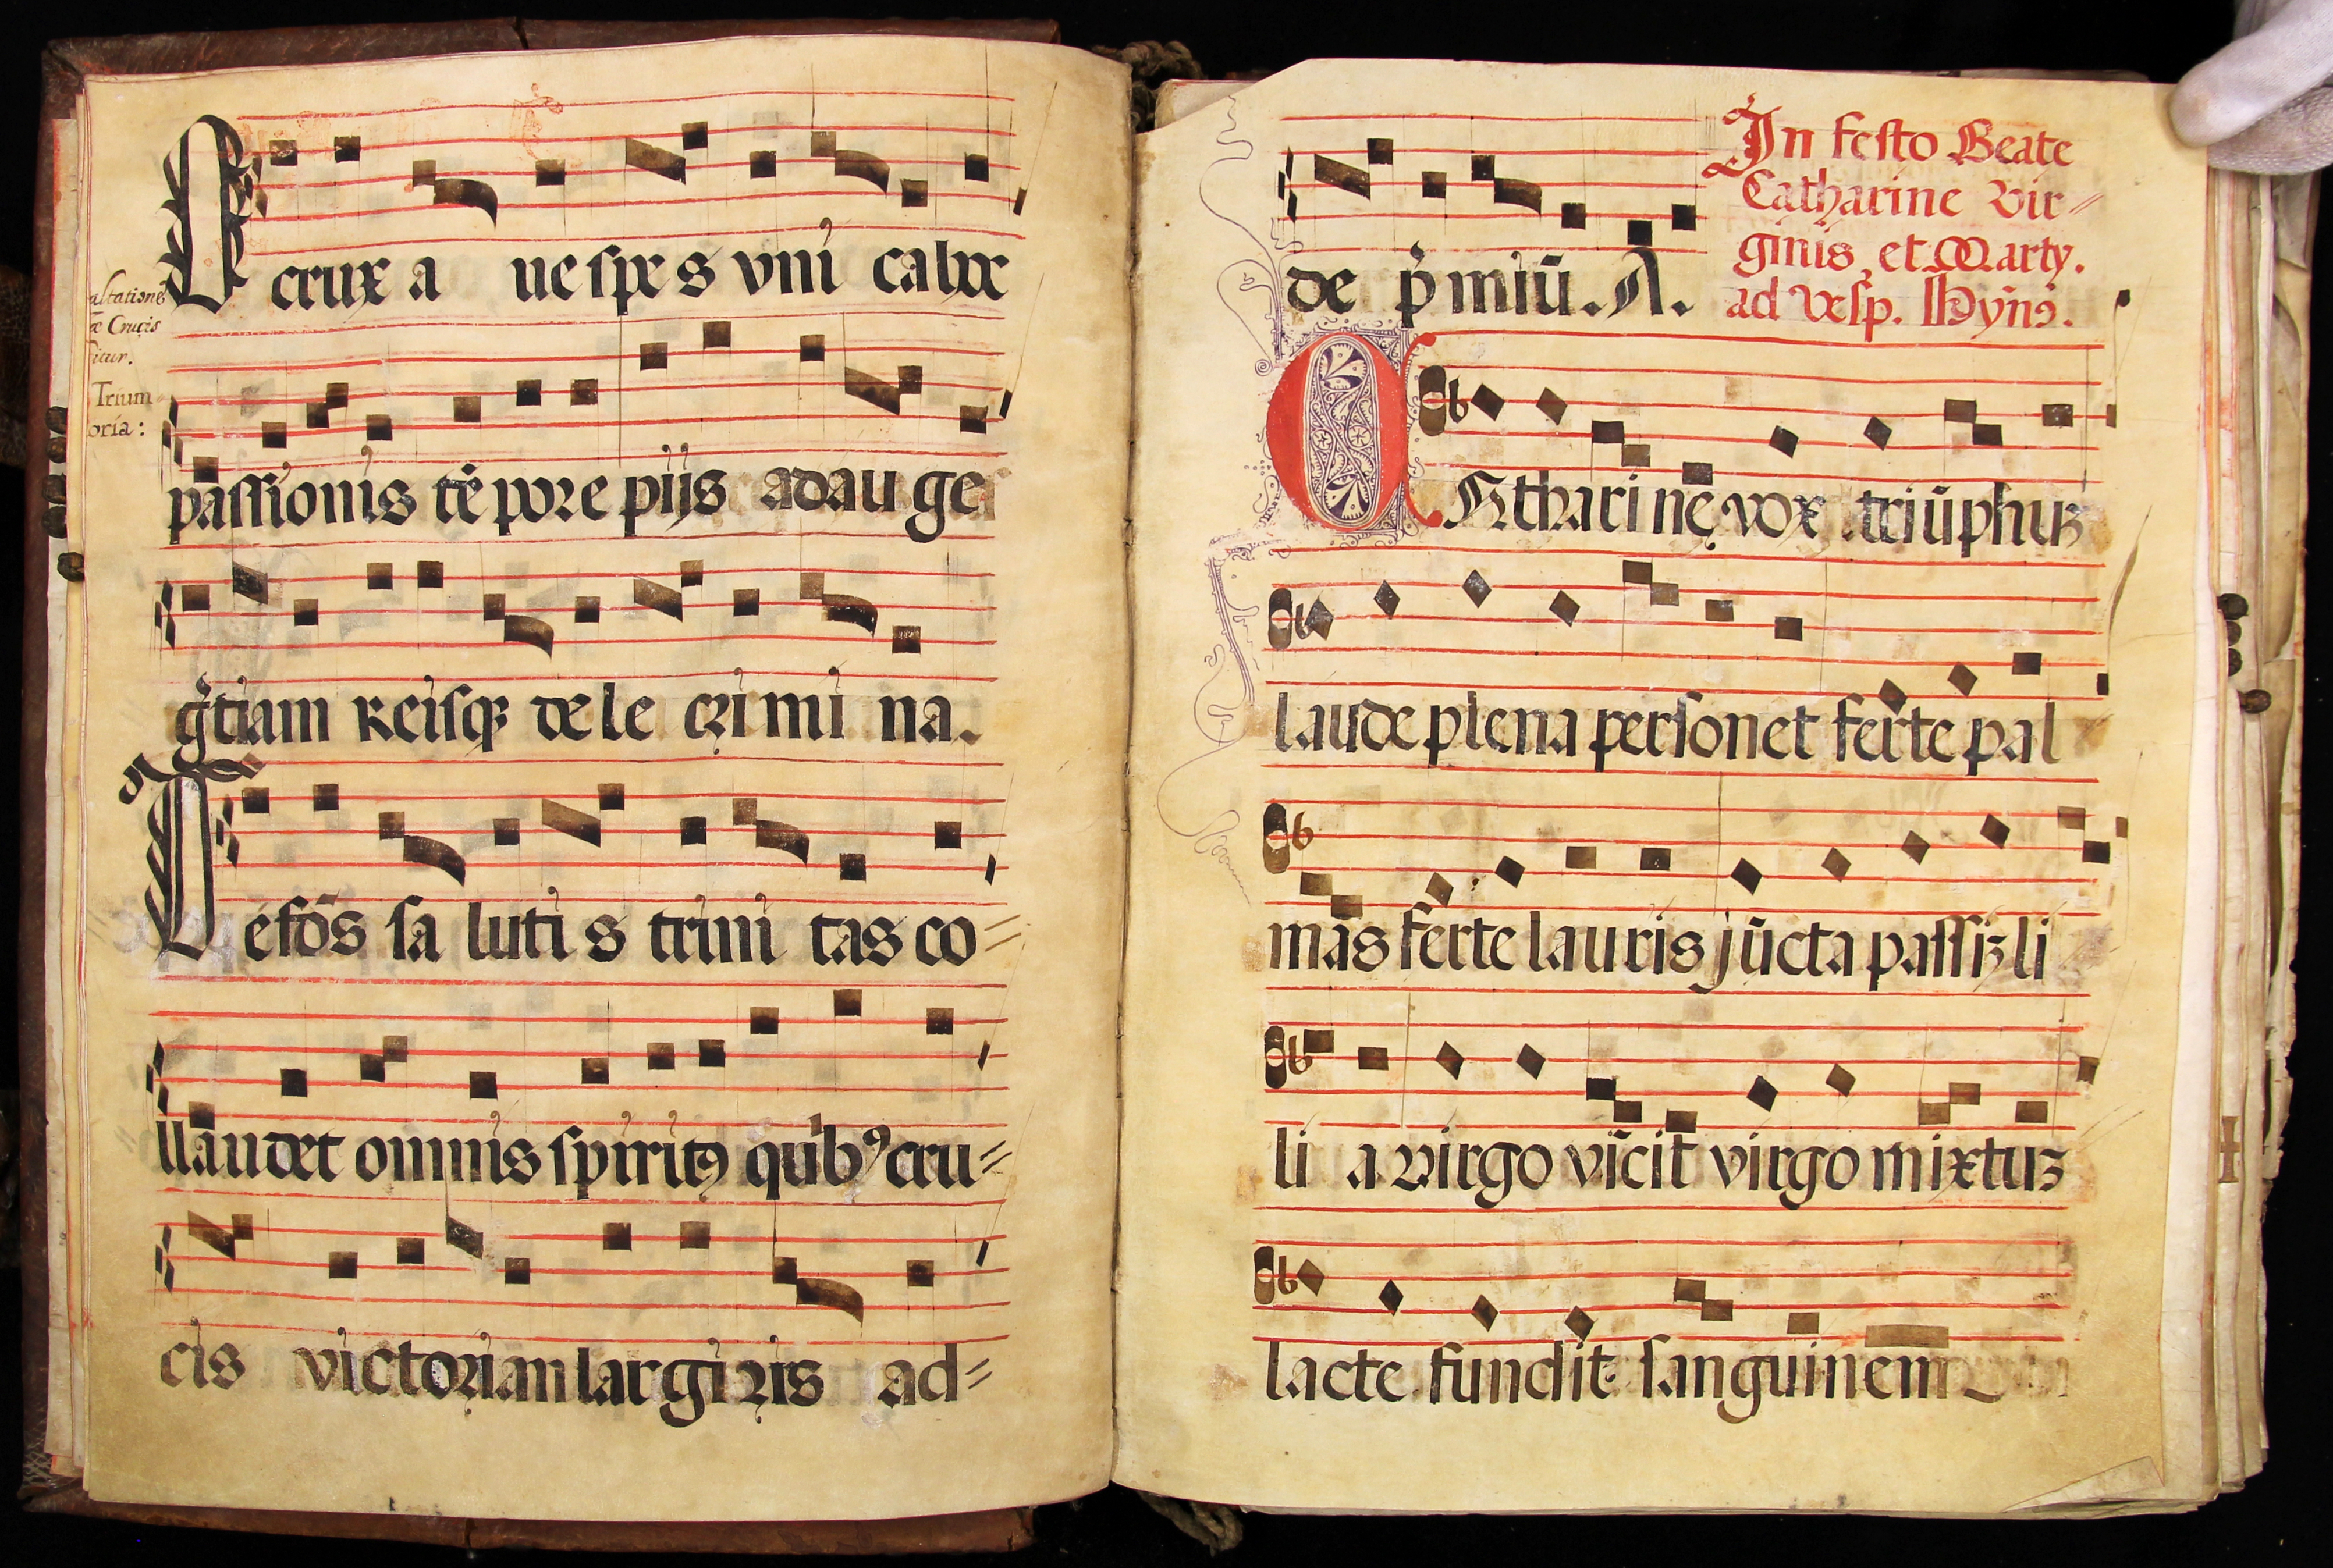 O crux a ue spes vni ca hoc
altatione
æ Crucis
icur.
Trium
oria:
passionis tẽpore piis adauge
gr̃tiam Reisqȝ dele crimi na.
Te fõs sa luti s trini tas co=
llaudet omnis spiritꝰ quibꝰ cru=
cis victoriam largiris ad=
de p̃miũ. A.
In festo Beate
Catharine Vir=
ginis, et Marty.
ad vesp. Hỹnꝰ.
CAtharinę vox triũphus
laude plena personet ferte pal
mas ferte lauris jũcta passis li
li a virgo vicit virgo mixtus
lacte fundit sanguinem